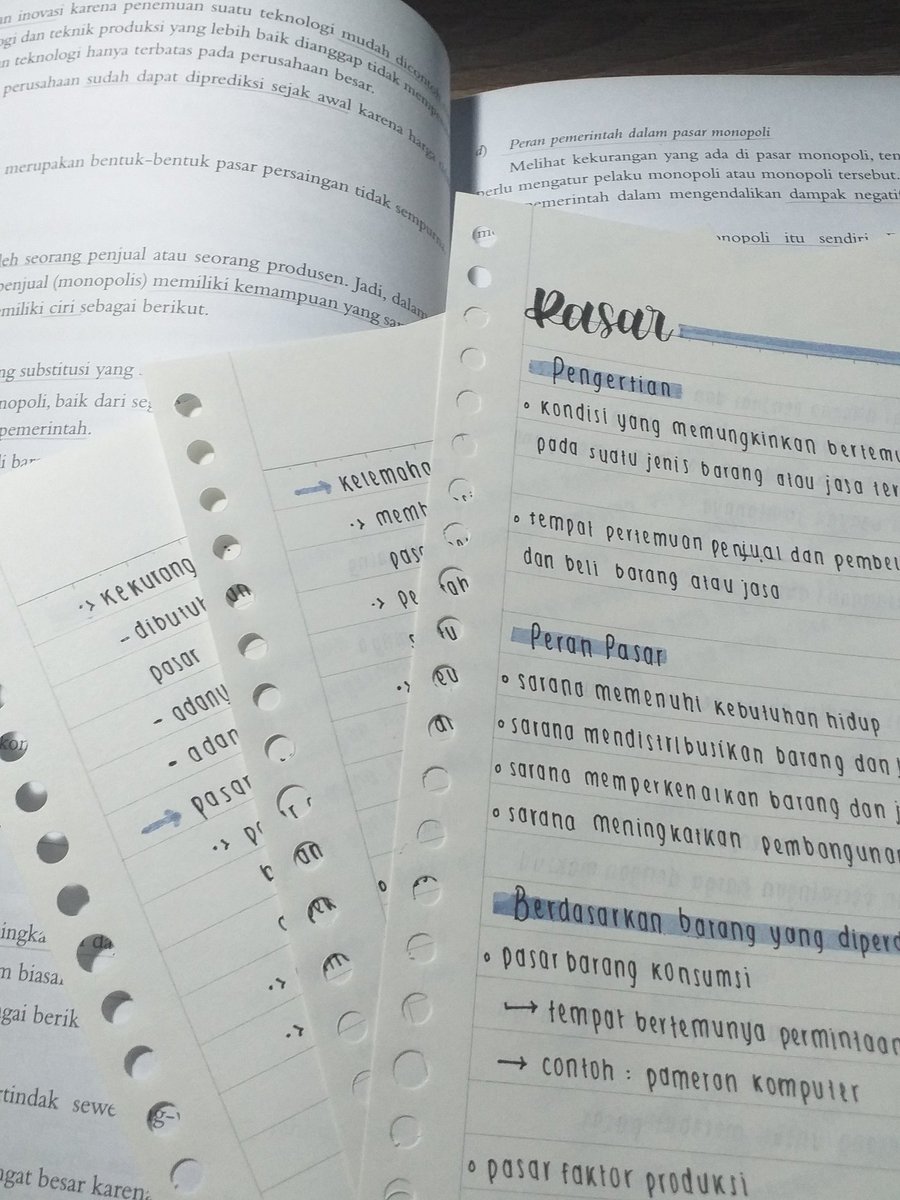 inovasi karena penemuan suatu teknologi mudah
dan teknik produksi yang lebih baik dianggap tidak
teknologi hanya terbatas pada perusahaan besar.
perusahaan sudah dapat diprediksi sejak awal karena harga
merupakan bentuk-bentuk pasar persaingan tidak
seorang penjual atau seorang produsen. Jadi, dalam
(monopolis) memiliki kemampuan yang
ciri sebagai berikut.
substitusi yang
baik dari
pemerintah.
biasa
berik
tindak
besar
d) Peran pemerintah dalam pasar monopoli
Melihat kekurangan yang ada di pasar monopoli,
perlu mengatur pelaku monopoli atau monopoli tersebut.
dalam mengendalikan dampak
itu sendiri
kekurang
- dibutuh
pasar
- adany
- adan
→ pasar
→ kelemaho
memb
pe
Pasar
Pengertian
• kondisi yang memungkinkan bertemu
pada suatu jenis barang atau jasa ter
• tempat pertemuan penjual dan pembel
dan beli barang atau jasa
Peran Pasar
• sarana memenuhi kebutuhan hidup
• sarana mendistribusikan barang dan
• sarana memperkenalkan barang dan j
• sarana meningkatkan pembanguna
Berdasarkan barang yang diperd
• pasar barang konsumsi
→ tempat bertemunya permintaan
→ contoh : pameran komputer
• pasar faktor produksi